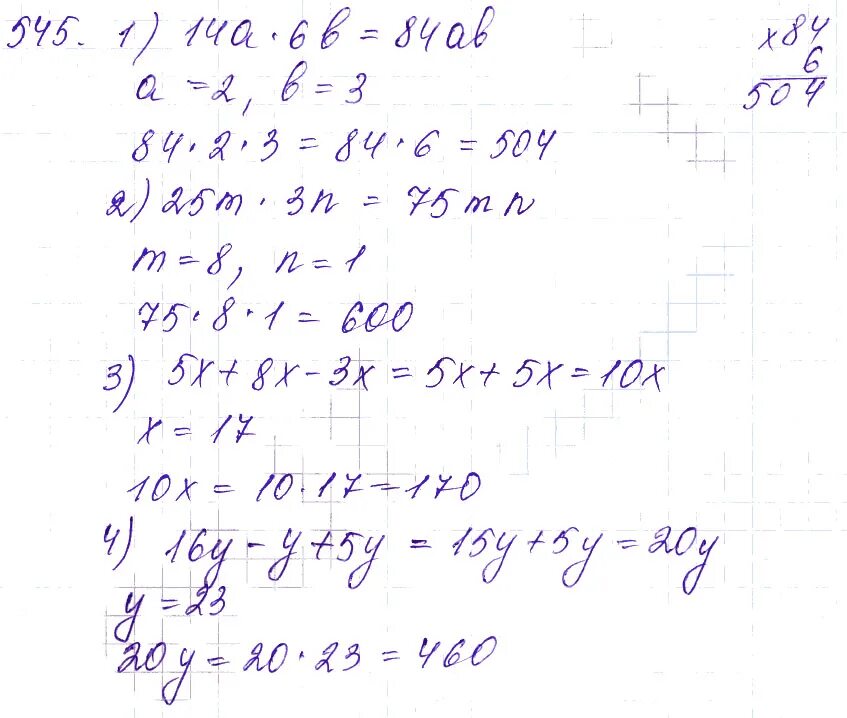 545. 1) 14a · 6b = 84ab
a = 2, b = 3
84 · 2 · 3 = 84 · 6 = 504
×84
6
504
2) 25m · 3n = 75mn
m = 8, n = 1
75 · 8 · 1 = 600
3) 5x + 8x - 3x = 5x + 5x = 10x
x = 17
10x = 10 · 17 = 170
4) 16y - y + 5y = 15y + 5y = 20y
y = 23
20y = 20 · 23 = 460